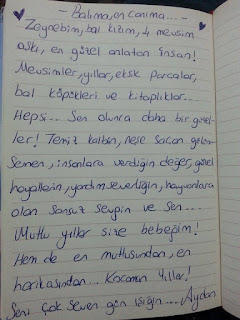 - Balıma, en canıma... -
Zeynebim, bal kızım, 4 mevsim
aşkı, en güzel anlatan insan!
Mevsimler, yıllar, eksik parçalar,
bal köpükleri ve kitaplıklar...
Hepsi... Sen olunca daha bir güzel-
ler! Temiz kalbin, neşe saçan gülüm-
semen, insanlara verdiğin değer, güzel
hayallerin, yardım severliğin, hayvanlara
olan sonsuz sevgin ve sen....
Mutlu yıllar size bebeğim!
Hem de en mutlusundan, en
harikasından... Kocaman Yıllar!
Seni çok seven gün ışığın.... Aydan